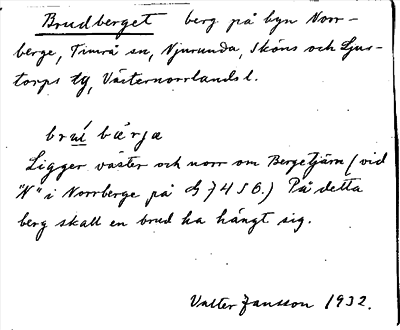 Brudberget berg på byn Norr-
berge, Timrå sn, Njurunda, Sköns och Ljus-
torps tg, Västernorrlands l.
brú bärja
Ligger väster och norr om Bergetjärn (vid
"N" i Norrberge på G 74 S B.) På detta
berg skall en brud ha hängt sig.
Valter Jansson 1932.